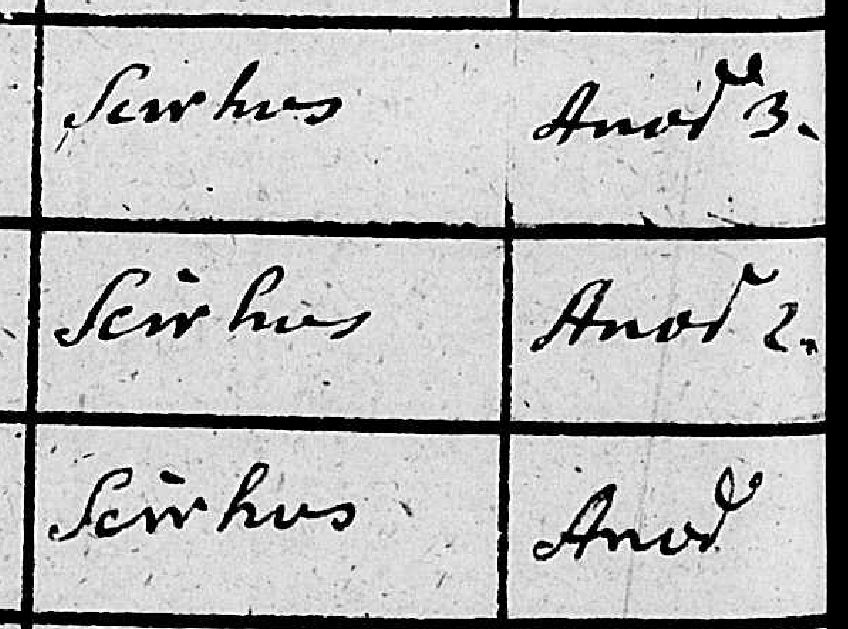 Scirrhus Anod 3.
Scirrhus Anod 2.
Scirrhus Anod